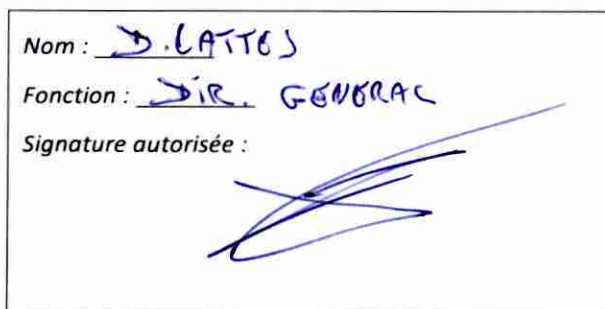 Nom : D. LATTES
Fonction : DIR. GENERAL
Signature autorisée :